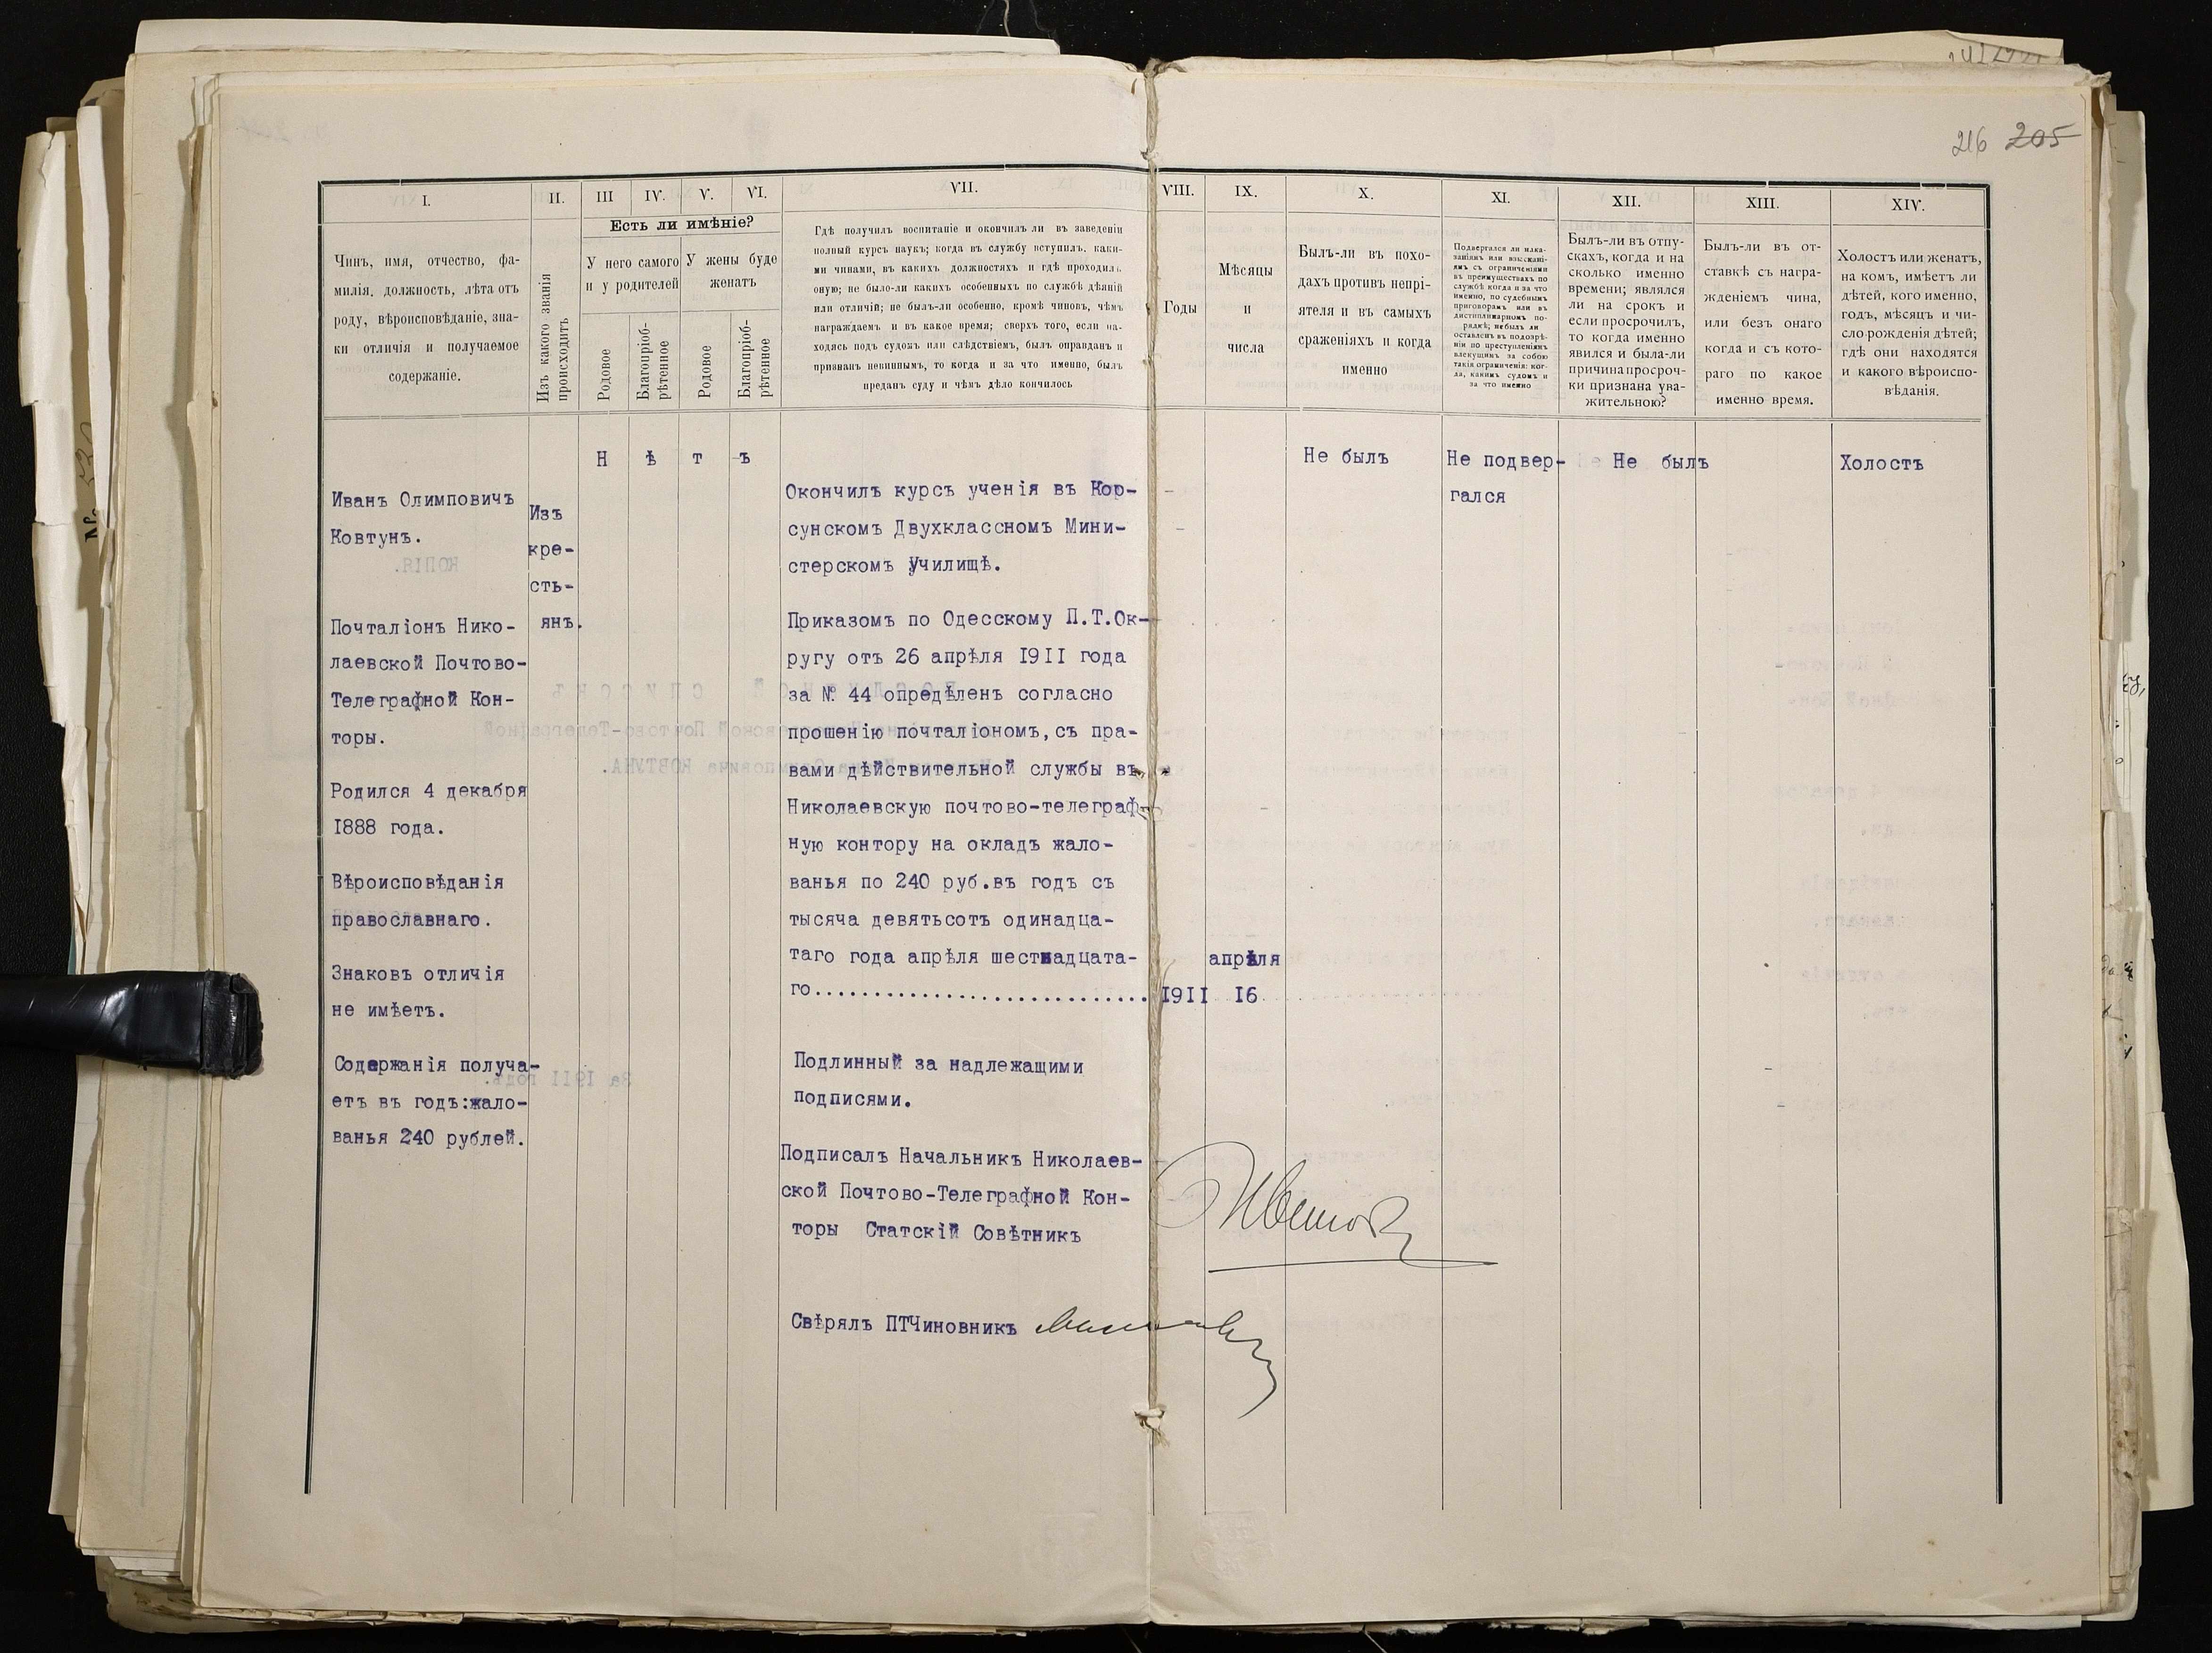 216 205
I.
II.
III
IV.
V.
VI.
VII.
VIII.
IX.
X.
XI.
XII.
XIII.
XIV.
Чинъ, имя, отчество, фа-
милія, должность, лѣта отъ
роду, вѣроисповѣданіе, зна-
ки отличія и получаемое
содержаніе.
Изъ какого званія
происходитъ
Есть ли имѣніе?
У него самого
и у родителей
У жены буде
женатъ
Родовое
Благопріоб-
рѣтенное
Родовое
Благопріоб-
рѣтенное
Гдѣ получилъ воспитаніе и окончилъ ли въ заведеніи
полный курсъ наукъ; когда въ службу вступилъ, каки-
ми чинами, въ какихъ должностяхъ и гдѣ проходилъ
оную; не было-ли какихъ особенныхъ по службѣ дѣяній
или отличій; не былъ-ли особенно, кромѣ чиновъ, чѣмъ
награждаемъ и въ какое время; сверхъ того, если на-
ходясь подъ судомъ или слѣдствіемъ, былъ оправданъ и
признанъ невиннымъ, то когда и за что именно, былъ
преданъ суду и чѣмъ дѣло кончилось
Годы
Мѣсяцы
и
числа
Былъ-ли въ похо-
дахъ противъ непрі-
ятеля и въ самыхъ
сраженіяхъ и когда
именно
Подвергался ли нака-
заніямъ или взыскані-
ямъ съ ограниченіями
въ преимуществахъ по
службѣ когда и за что
именно, по судебнымъ
приговорамъ или въ
дисциплинарномъ по-
рядкѣ; не былъ ли
оставленъ въ подозрѣ-
ніи по преступленіямъ
влекущимъ за собою
такія ограниченія: ког-
да, какимъ судомъ и
за что именно
Былъ-ли въ отпу-
скахъ, когда и на
сколько именно
времени; являлся
ли на срокъ и
если просрочилъ,
то когда именно
явился и была-ли
причина просроч-
ки признана ува-
жительною?
Былъ-ли въ от-
ставкѣ съ награ-
жденіемъ чина,
или безъ онаго
когда и съ кото-
раго по какое
именно время.
Холостъ или женатъ,
на комъ, имѣетъ ли
дѣтей, кого именно,
годъ, мѣсяцъ и чи-
сло рожденія дѣтей;
гдѣ они находятся
и какого вѣроиспо-
вѣданія.
Иванъ Олимповичъ
Ковтунъ.
Почталіонъ Нико-
лаевской Почтово-
Телеграфной Кон-
торы.
Родился 4 декабря
1888 года.
Вѣроисповѣданія
православнаго.
Знаковъ отличія
не имѣетъ.
Содержанія получа-
етъ въ годъ:жало-
ванья 240 рублей.
Изъ
кре-
сть-
янъ.
Н ѣ т ъ
Окончилъ курсъ ученія въ Кор-
сунскомъ Двухклассномъ Мини-
стерскомъ Училищѣ.
Приказомъ по Одесскому П.Т.Ок-
ругу отъ 26 апрѣля 1911 года
за № 44 опредѣленъ согласно
прошенію почталіономъ,съ пра-
вами дѣйствительной службы въ
Николаевскую почтово-телеграф-
ную контору на окладъ жало-
ванья по 240 руб.въ годъ съ
тысяча девятьсотъ одинадца-
таго года апрѣля шестнадцата-
го..............................
1911
апрѣля
16
Подлинный за надлежащими
подписями.
Подписалъ Начальникъ Николаев-
ской Почтово-Телеграфной Кон-
торы Статскій Совѣтникъ
Свѣрялъ ПТЧиновникъ
Не былъ
Не подвер-
гался
Не былъ
Холостъ